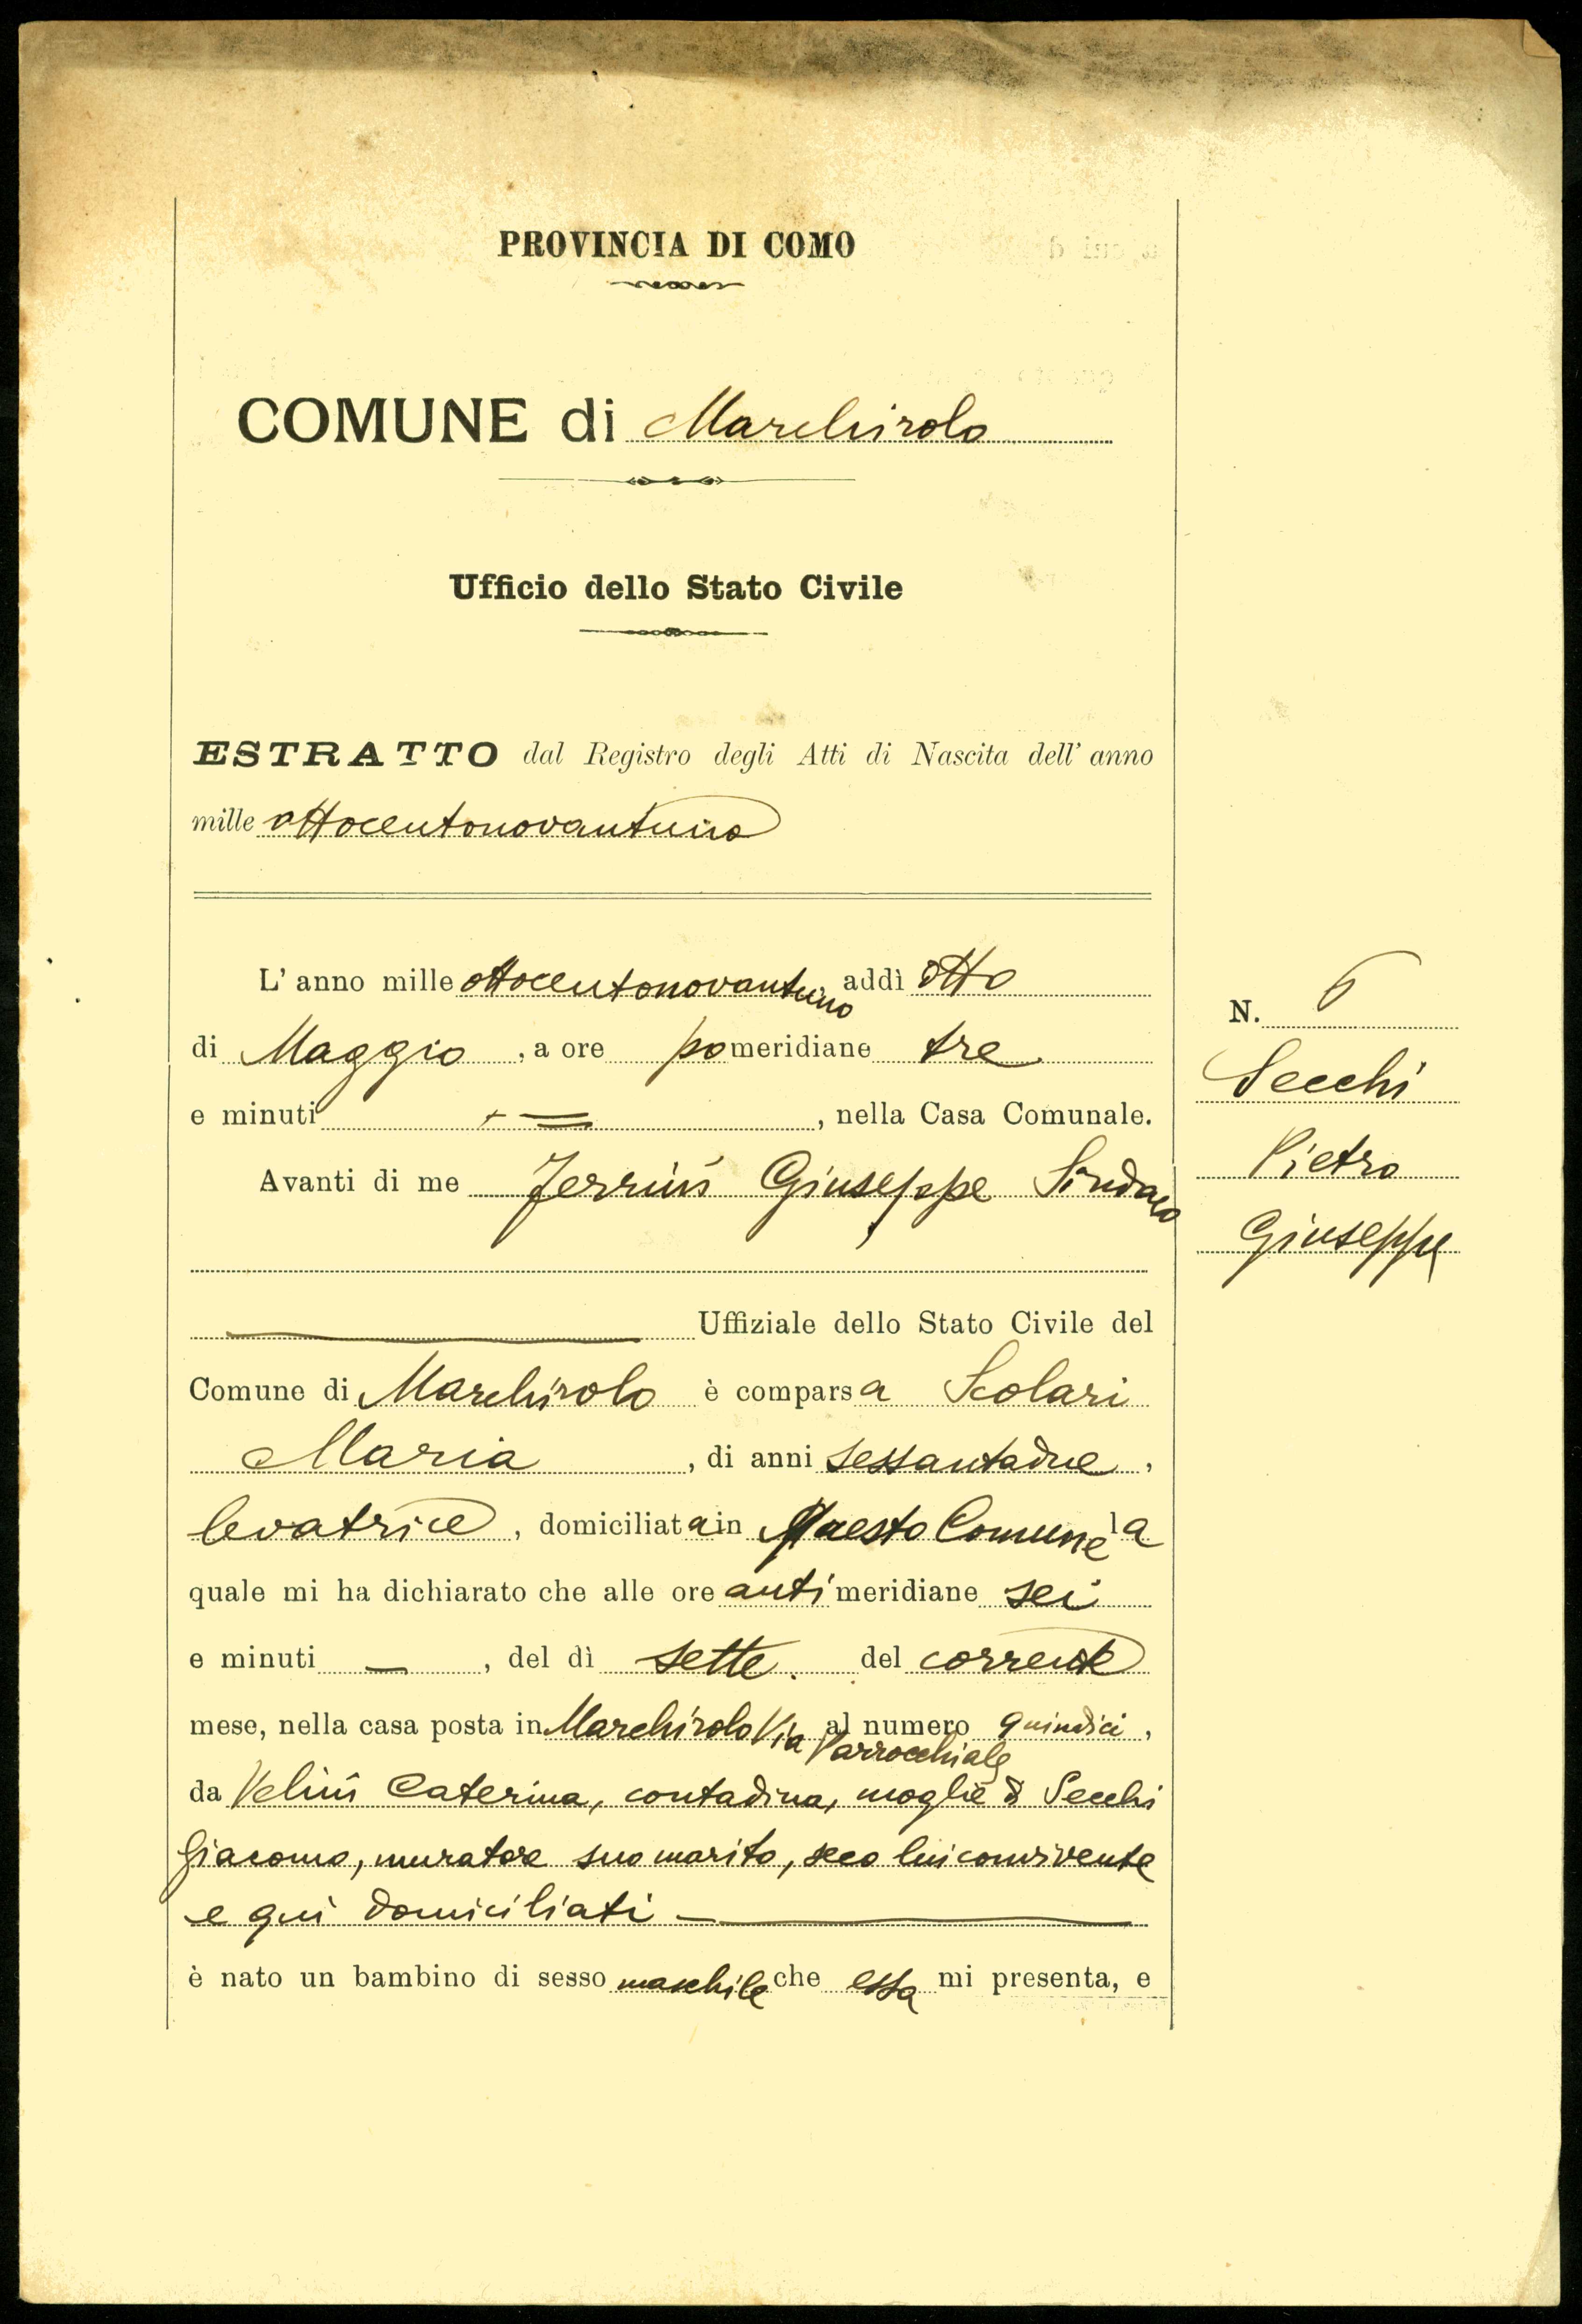 PROVINCIA DI COMO
COMUNE di Marchirolo
Ufficio dello Stato Civile
ESTRATTO dal Registro degli Atti di Nascita dell' anno
mille ottocentonovantuno
L' anno mille ottocentonovantuno addì otto
di Maggio, a ore pomeridiane tre
e minuti =, nella Casa Comunale.
Avanti di me Jerrini Giuseppe Sindaco
Uffiziale dello Stato Civile del
Comune di Marchirolo è comparsa Scolari
Maria, di anni sessantadue,
levatrice, domiciliata in questo Comune la
quale mi ha dichiarato che alle ore antimeridiane sei
e minuti —, del dì sette. del corrente
mese, nella casa posta in Marchirolo Via Parrocchiale al numero quindici,
da Velini Caterina, contadina, moglie di Secchi
Giacomo, muratore suo marito, seco lui convivente
e qui domiciliati —
è nato un bambino di sesso maschile che essa mi presenta, e
N. 6
Secchi
Pietro
Giuseppe